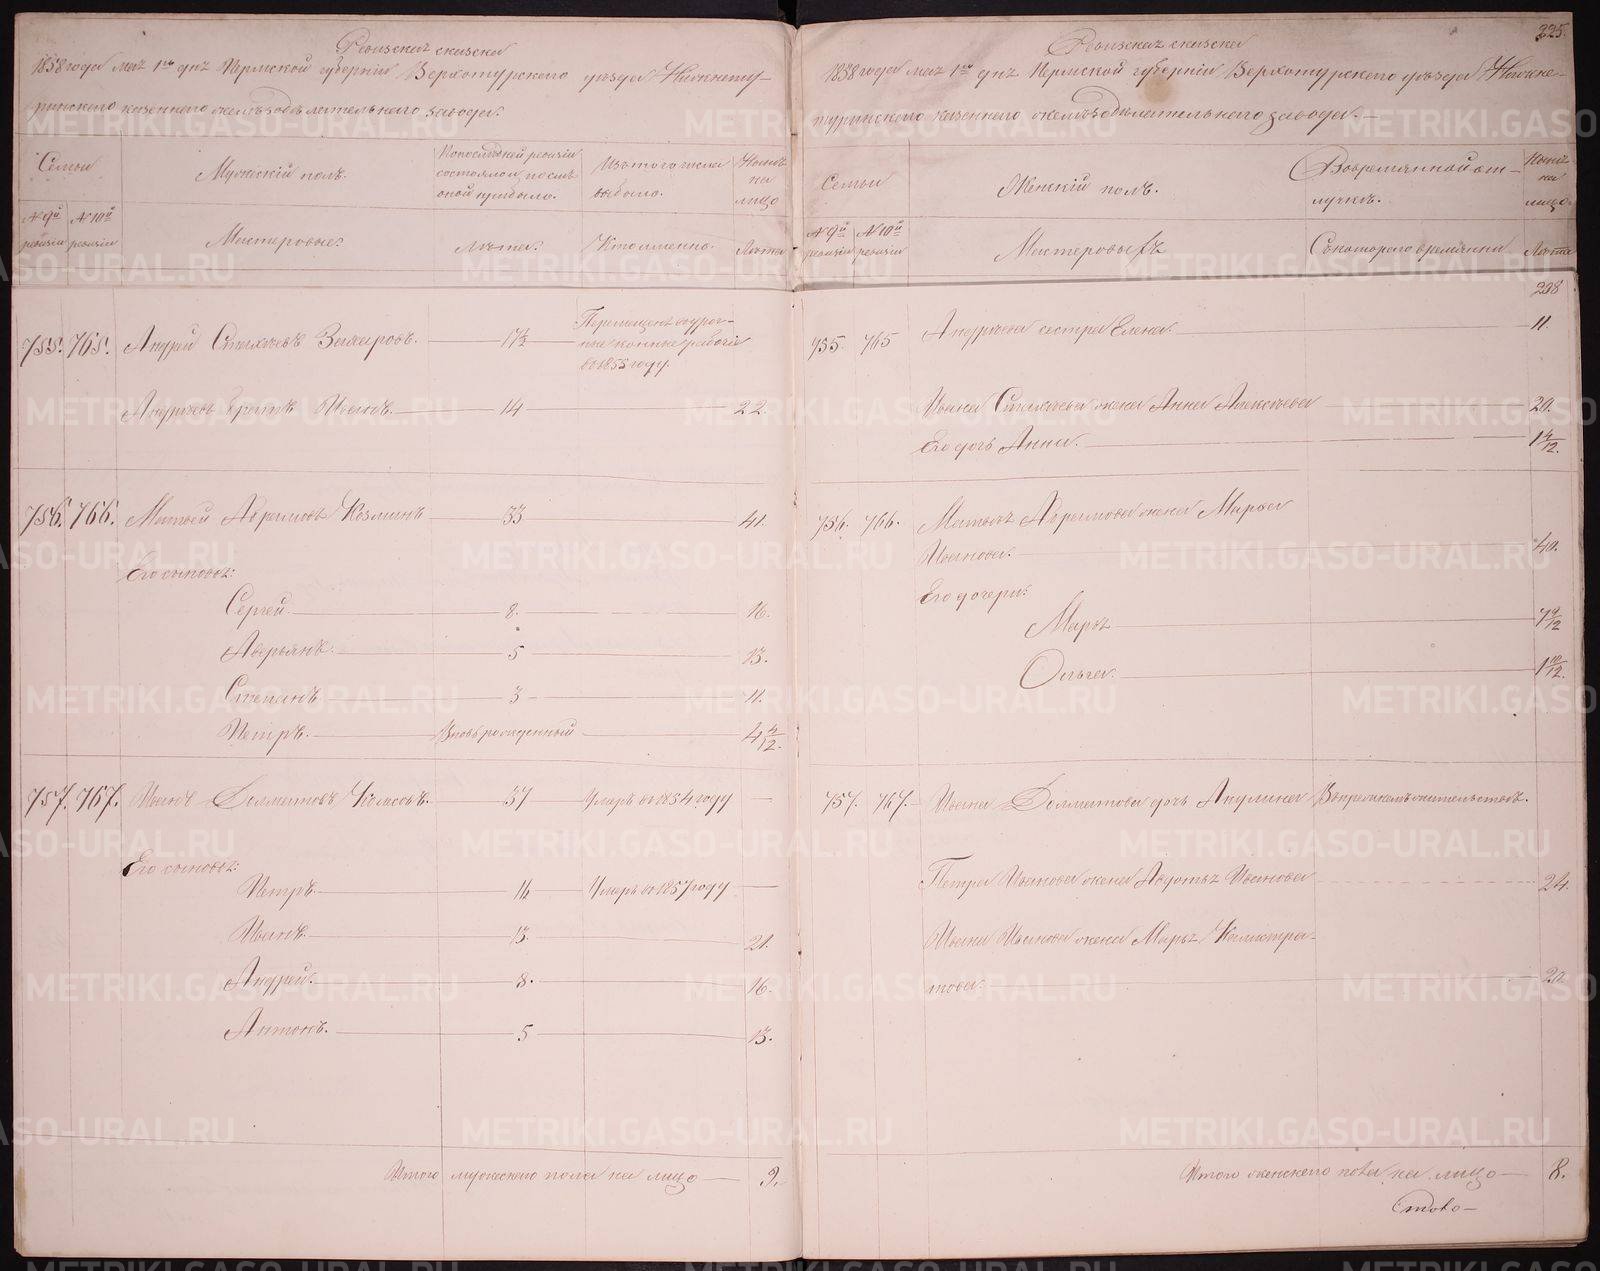 Ревизская сказка
1858 года мая 1го дня Пермской губернии Верхотурского уезда Нижнету-
ринского казенного железоделательного завода.
Семьи
Мужескій полъ.
По последней ревизіи состояло и после оной прибыло.
Изъ того числа выбыло.
Ныне на лицо
№ 9й ревизіи
№ 10й ревизіи
Мастеровые:
Лета.
Кто именно.
Лета
755. 765. Андрей Захаровъ. 17½ Перемещенъ в уроч-
ные конные рабочіе
въ 1855 году.
Андреевъ братъ Иванъ. 14 22.
756. 766. Матвей Абрамовъ Козминъ 33 41.
Его сыновья:
Сергей 8. 16.
Аверьянъ. 5 13.
Степанъ 3 11.
Петръ. Вновь рожденный 4 4/12.
757. 767. Иванъ Долматовъ 37 Умеръ въ 1854 году
Его сыновья:
Петръ 16 Умеръ въ 1857 году
Иванъ. 13. 21.
Андрей. 8. 16.
Антонъ. 5 13.
Итого мужеского пола на лицо 9.
325.
Ревизская сказка
1858 года мая 1го дня Пермской губерніи Верхотурского уезда Нижне-
туринского казенного железоделательного завода.
Семьи
Женскій полъ.
Во временной от-
лучке.
Ныне на лицо.
№ 9й ревизіи
№ 10й ревизіи
Мастеровые
Съ котораго времени
Лета
298
755. 765 Андреева сестра Елена 11.
Ивана жена Анна Алексеева 20.
Его дочь Анна. 1 4/12.
756. 766. Матвея Абрамова жена Марья
Иванова. 40.
Его дочери:
Марья 7 9/12
Ольга. 1 10/12.
757. 767. Ивана Долматова дочь Акулина В прежнем жительстве.
Петра Иванова жена Авдотья Иванова 24.
Ивана Иванова жена Марья Калистра-
това. 20.
Итого женского пола на лицо 8.